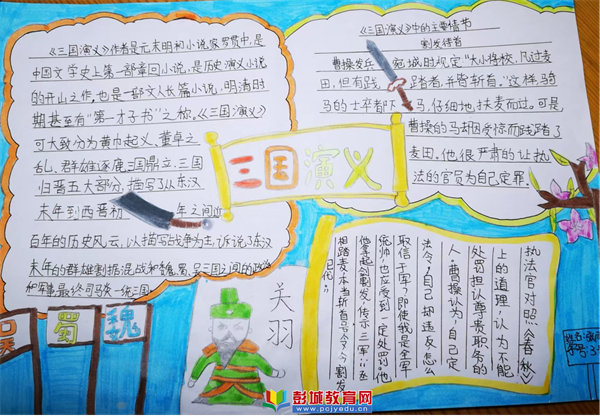 《三国演义》作者是元末明初小说家罗贯中,是
中国文学史上第一部章回小说,是历史演义小说
的开山之作,也是一部文人长篇小说,明清时
期甚至有“第一才子书”之称,《三国演义》
可大致分为黄巾起义、董卓之
乱、群雄逐鹿、三国鼎立、三国
归晋五大部分,描写了从东汉
末年到西晋初 年之间近
百年的历史风云,以描写战争为主,诉说了东汉
末年的群雄割据混战和魏、蜀、吴三国之间的政治
和军事,最终司马炎一统三国
《三国演义》中的主要情节
割发待首
曹操发兵 宛城时规定:“大小将校,凡过麦
田,但有践 踏者,并皆斩首。”这样,骑
马的士卒都下 马,仔细地扶麦而过。可是
曹操的马却因受惊而践踏了
麦田。他很严肃的让执
法的官员为自己定罪。
三国演义
执法官对照《春秋》
上的道理,认为不能
处罚担认尊贵职务的
人。曹操认为:自己定
法令,自己却违反,怎么
取信于军?即使我是全军
统帅,也应受到一定处罚。他
拿起剑割发,传示三军:“丞
相踏麦,本当斩首号令,今割发
已代。”
关羽
吴
蜀
魏
彭城教育网
www.pcjyedu.cn